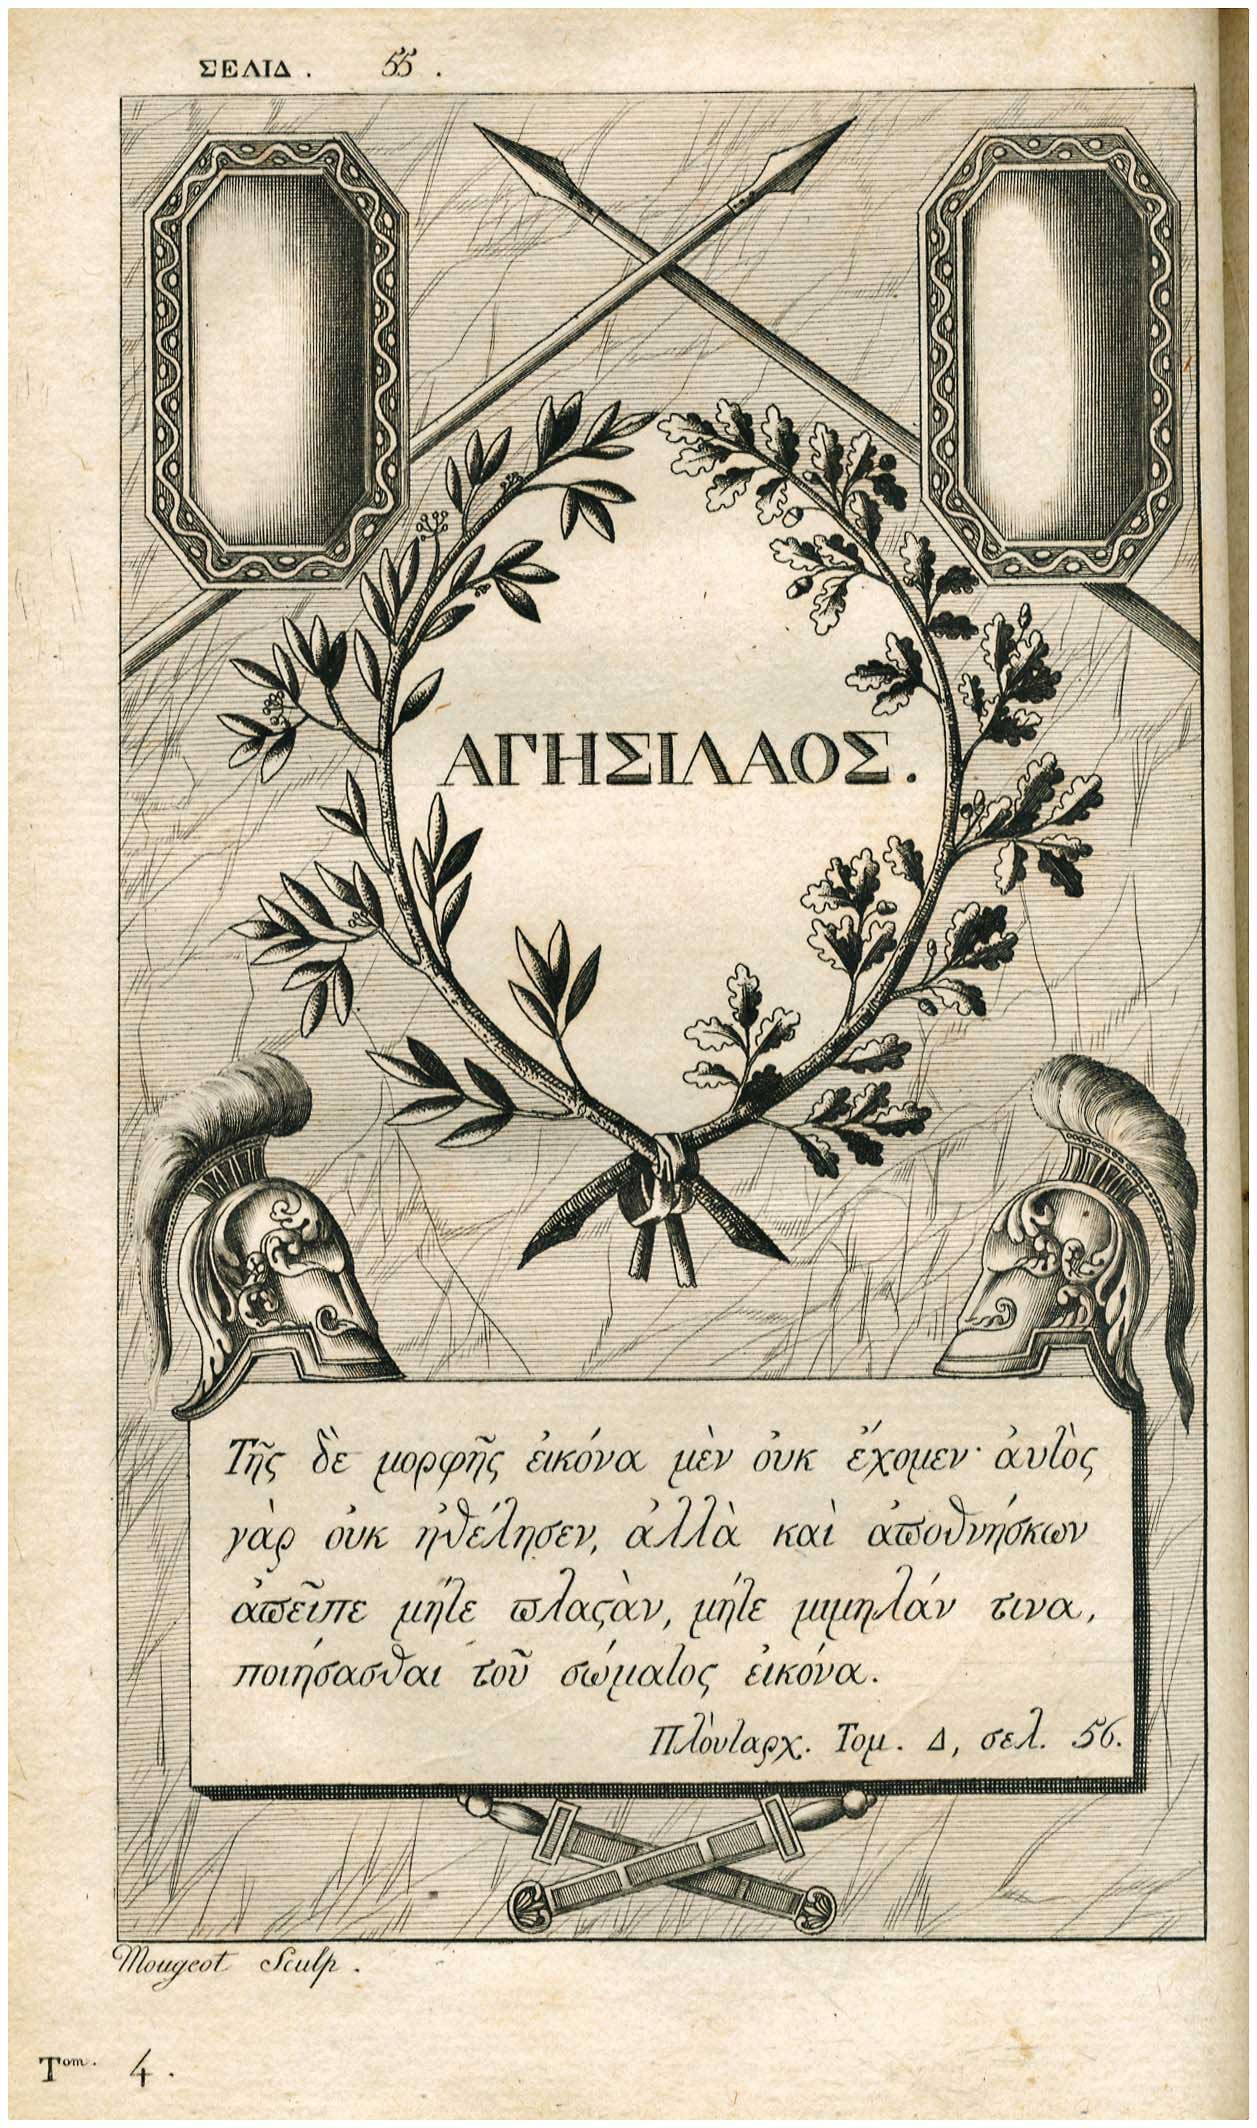 ΣΕΛΙΔ. 55.
ΑΓΗΣΙΛΑΟΣ.
Τῆς δὲ μορφῆς ἐικόνα μὲν ὀυκ ἔχομεν· ἀυτὸς
γὰρ ὀυκ ἠθέλησεν, ἀλλὰ καὶ ἀποθνήσκων
ἀπεῖπε μήτε πλαϛὰν, μήτε μιμηλάν τινα,
ποιήσασθαι τοῦ σώματος ἐικόνα.
Πλὸυταρχ. Τομ. Δ, σελ. 56.
Mougeot Sculp.
Tom. 4.